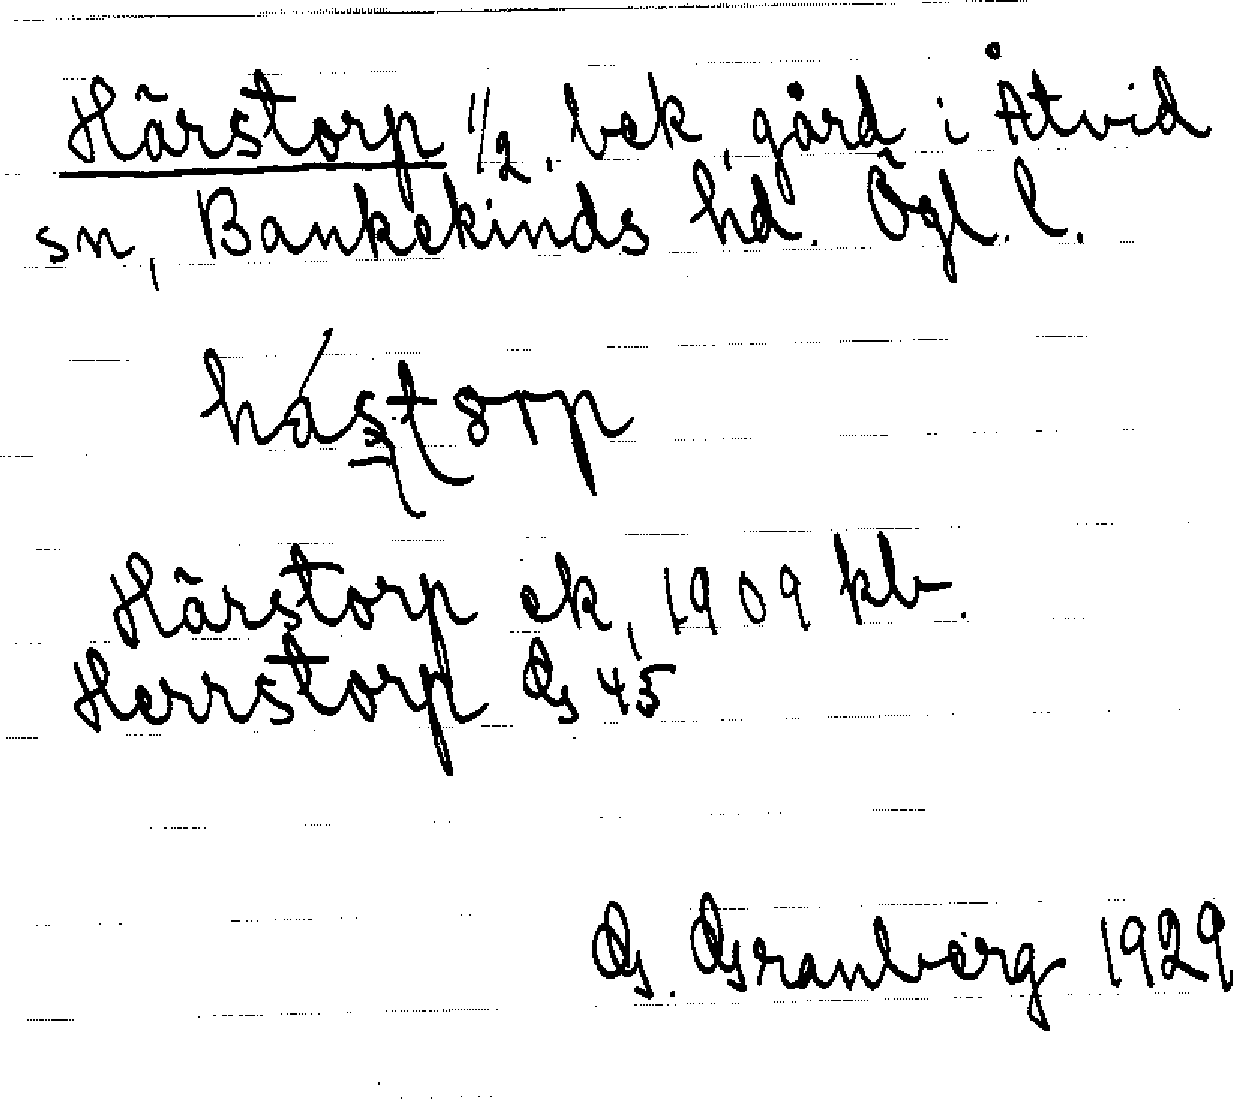 Härstorp 1/2. bek. gård i Åtvid
sn, Bankekinds hd. Ögl. l.
Härstorp ek, 1909 kb.
Herrstorp Gs 45
G. Granberg 1929